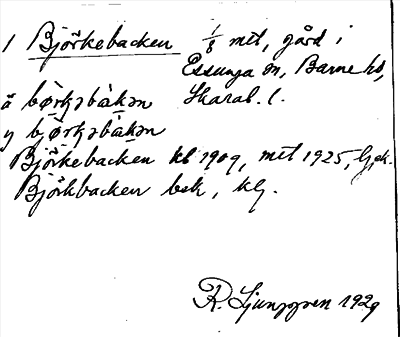 1 Björkebacken 1/8 mtl, gård i
Essunga sn, Barne hd,
Skarab. l.
ä bø̀rkəbàkən
y bjø̀rkəbàkən
Björkebacken kb 1909, mtl 1925, Gek.
Björkbacken bek, klj.
R. Ljunggren 1929